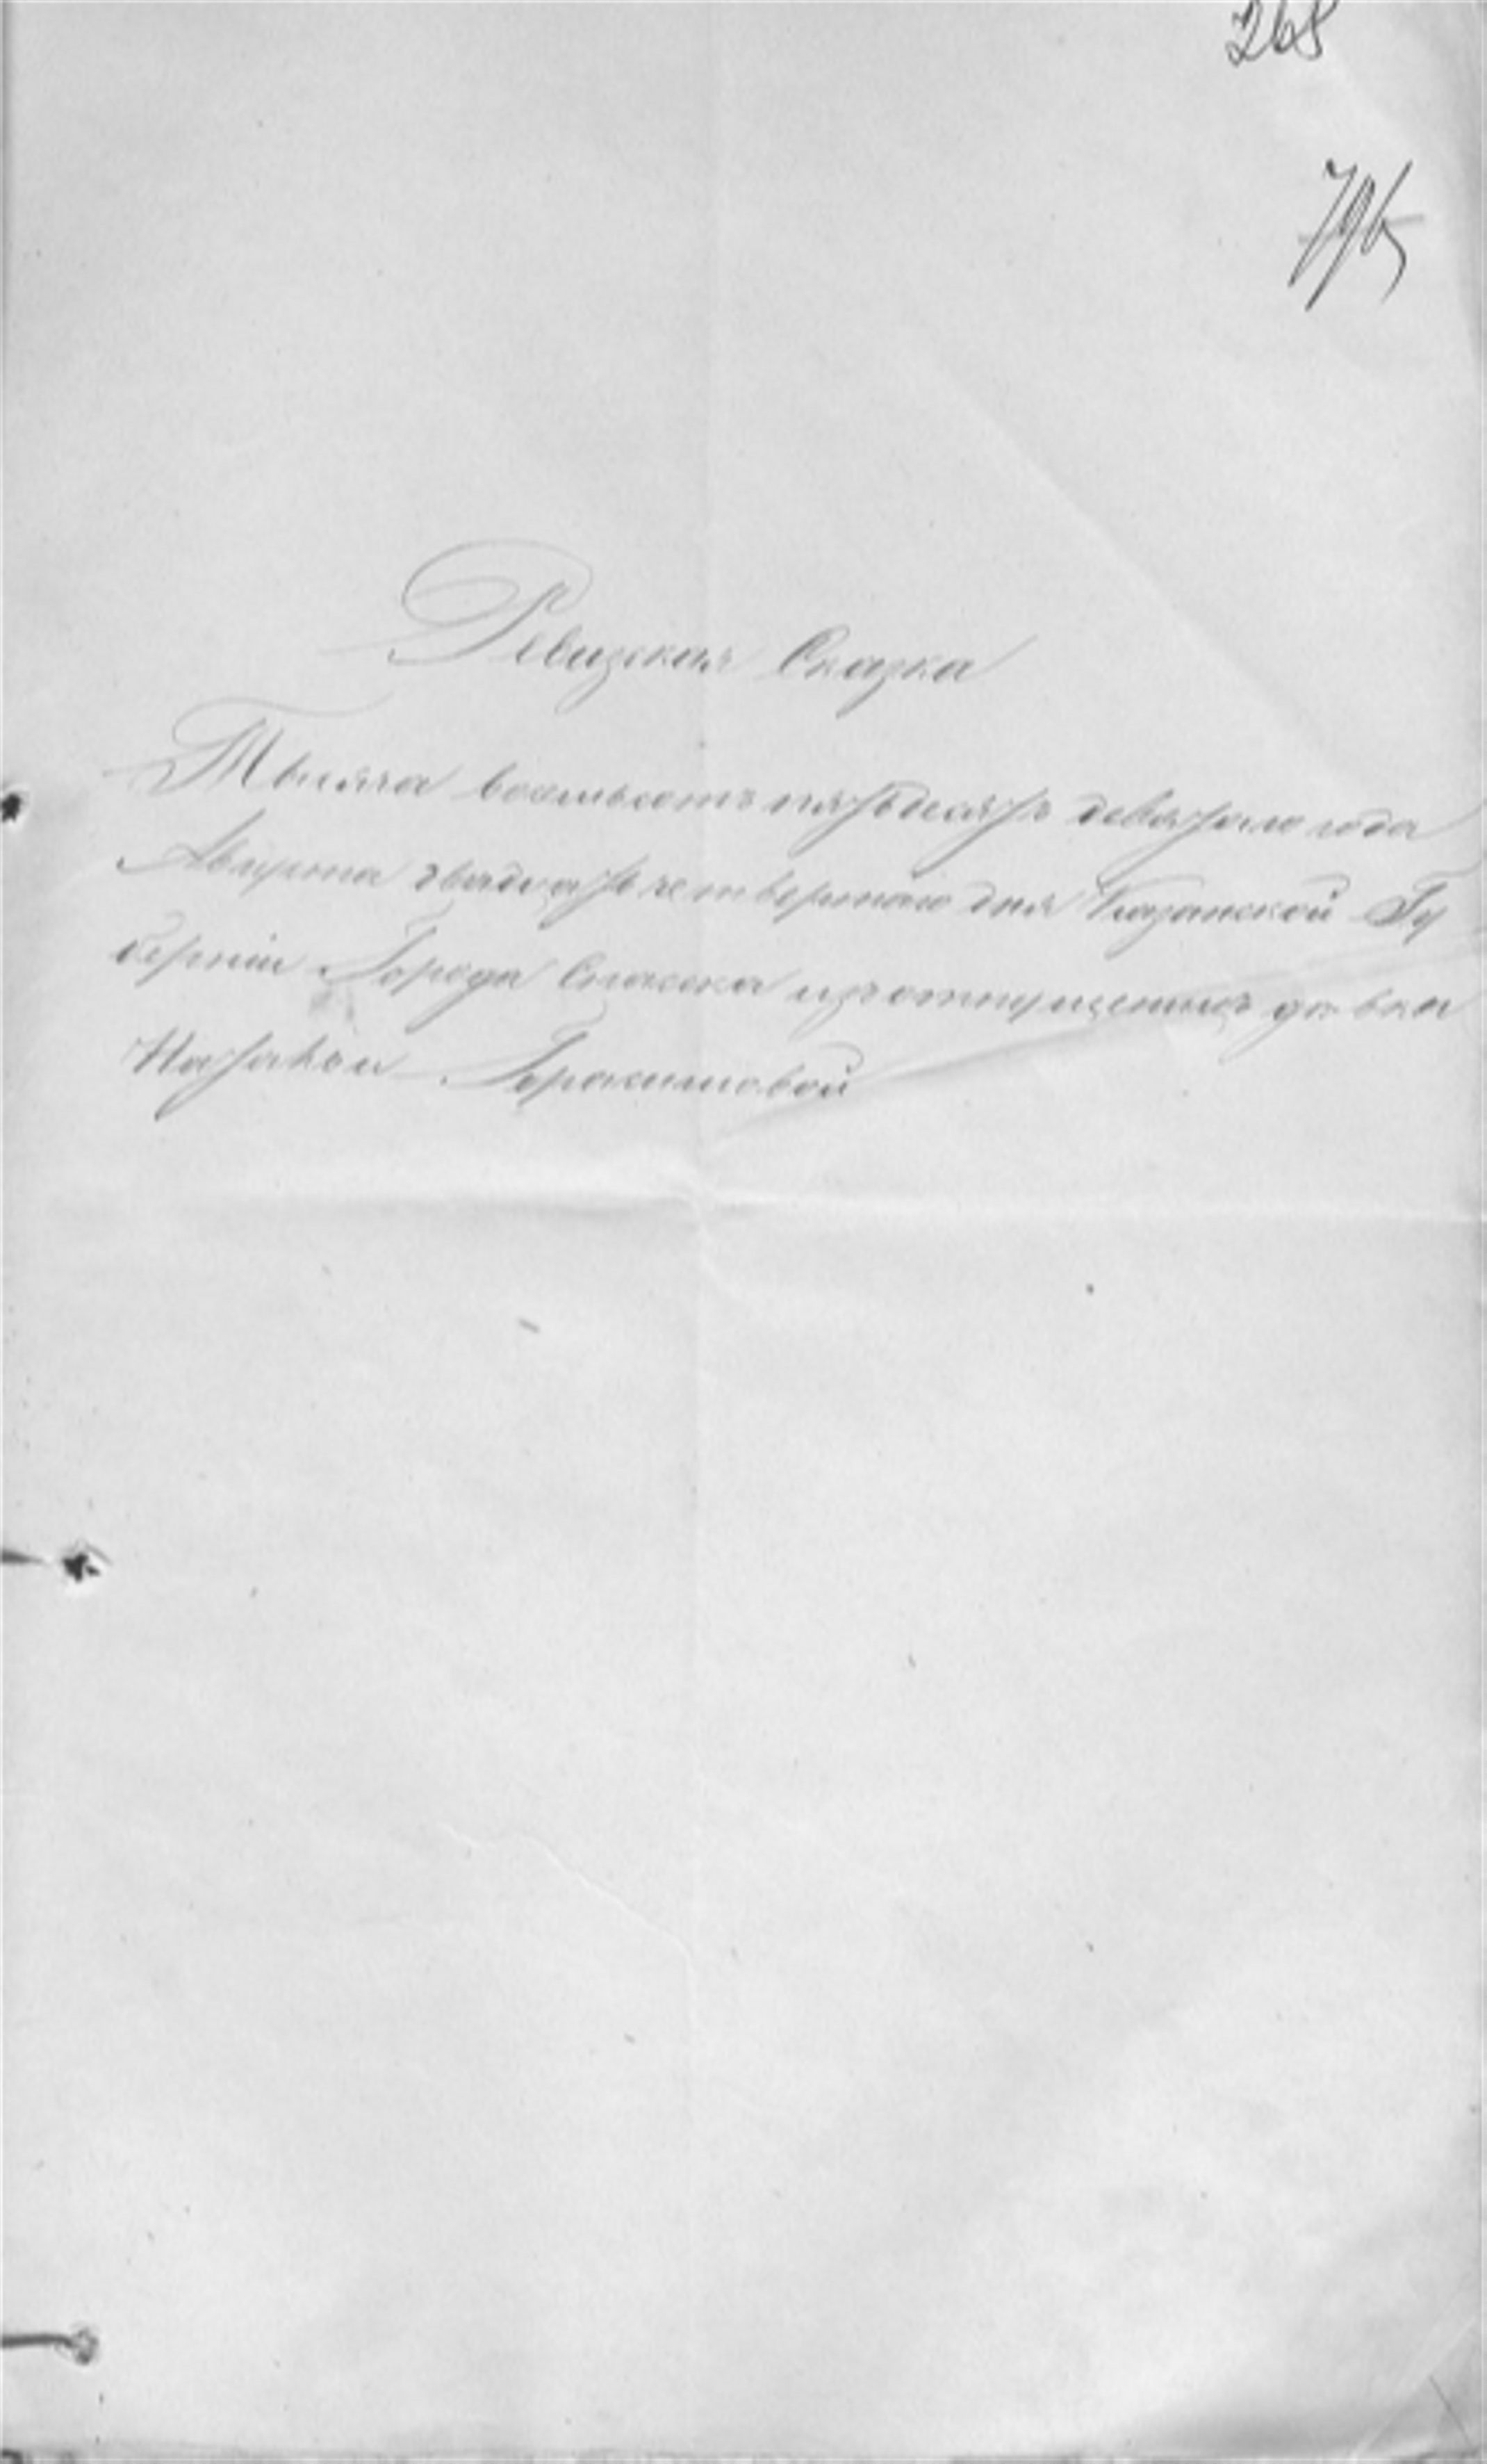 268
796
Ревизская Сказка
Тысяча восемьсотъ пятьдесятъ девятаго года
Августа двадцать четвертаго дня Казанской Гу
берніи Города Спасска изъ отпущенныхъ девки
Натальи Герасимовой